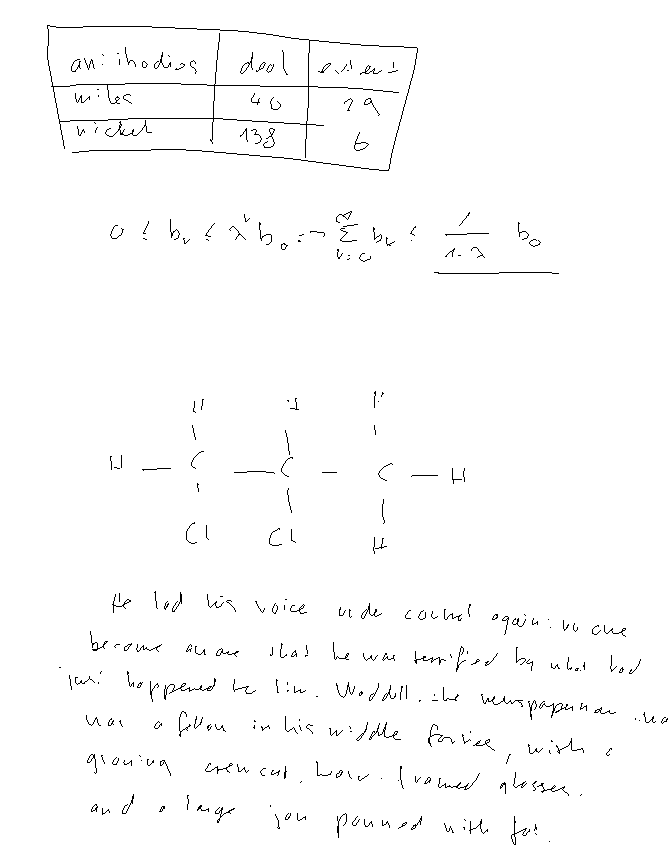 antibodies deal extent
miles 40 29
nickel 138 6
0 ≤ b_k ≤ λ^k b_0 ⇒ ∑_{k=0}^{∞} b_k ≤ 1/(1-λ) b_0
H H H
H — C — C — C — H
Cl Cl H
He had his voice under control again: no one
became aware that he was terrified by what had
just happened to him. Waddell, the newspaperman
was a fellow in his middle forties, with a
graying crewcut, horn-framed glasses,
and a large jaw padded with fat.